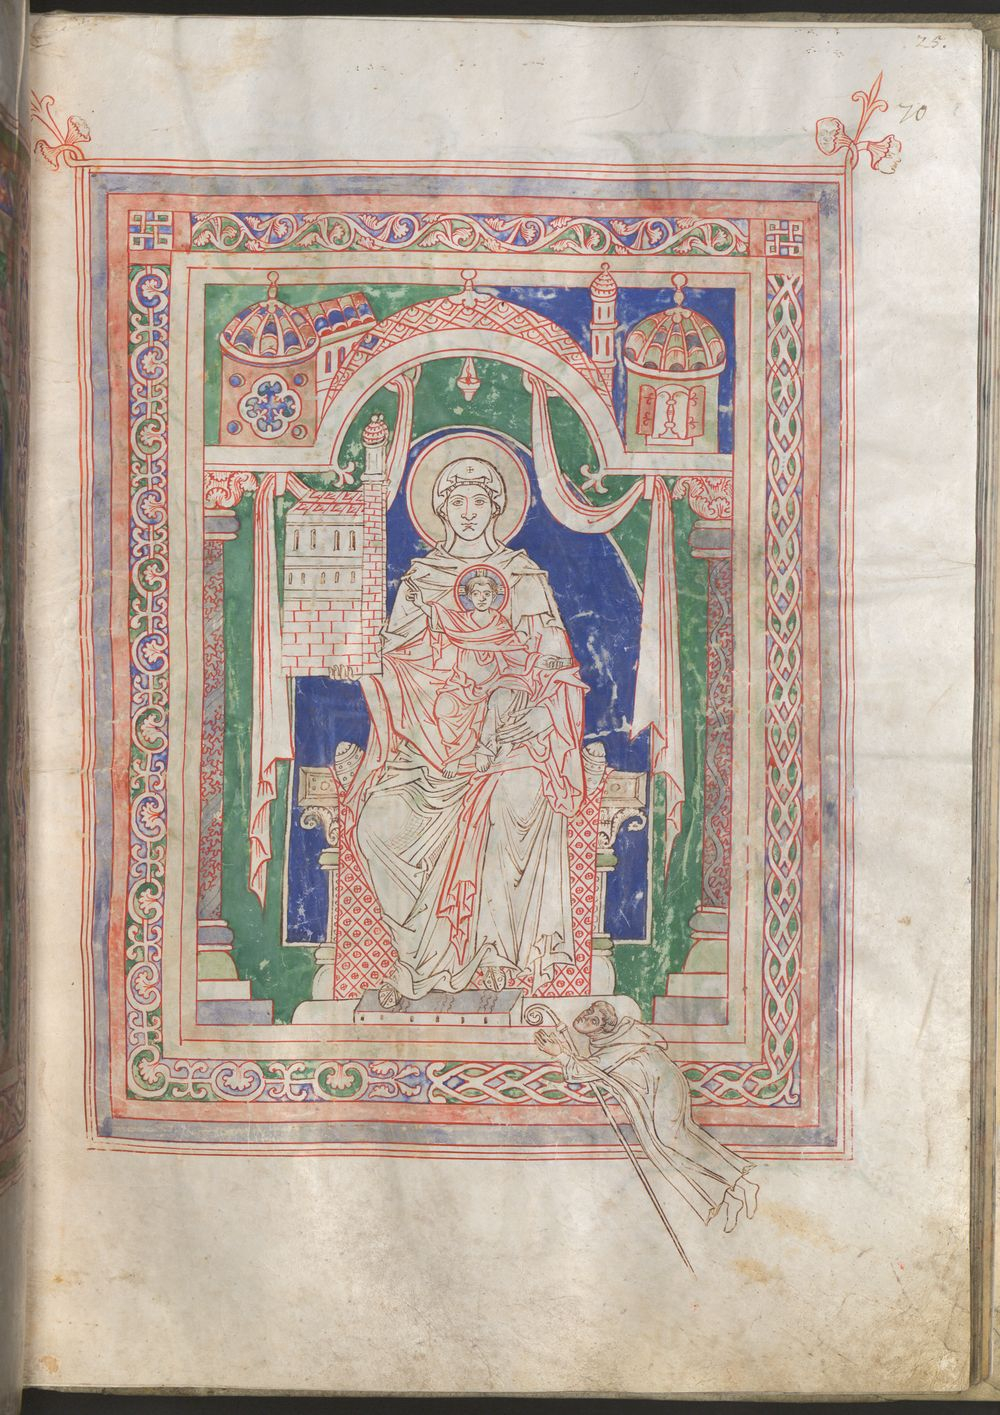 25.
70